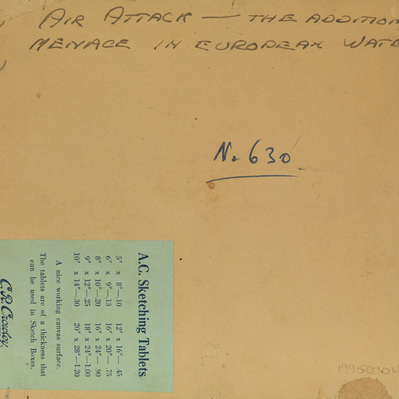 AIR ATTACK — THE ADDITION
MENACE IN EUROPEAN WAT
No 630
A.C. Sketching Tablets
5" x 8"—.10 12" x 16"— .45
6" x 9"—.13 16" x 20"— .75
8" x 10"—.20 16" x 24"— .90
9" x 12"—.25 18" x 24"—1.00
10" x 14"—.30 20" x 28"—1.20
A nice working canvas surface.
The tablets are of a thickness that
can be used in Sketch Boxes.
C.R. Crowley